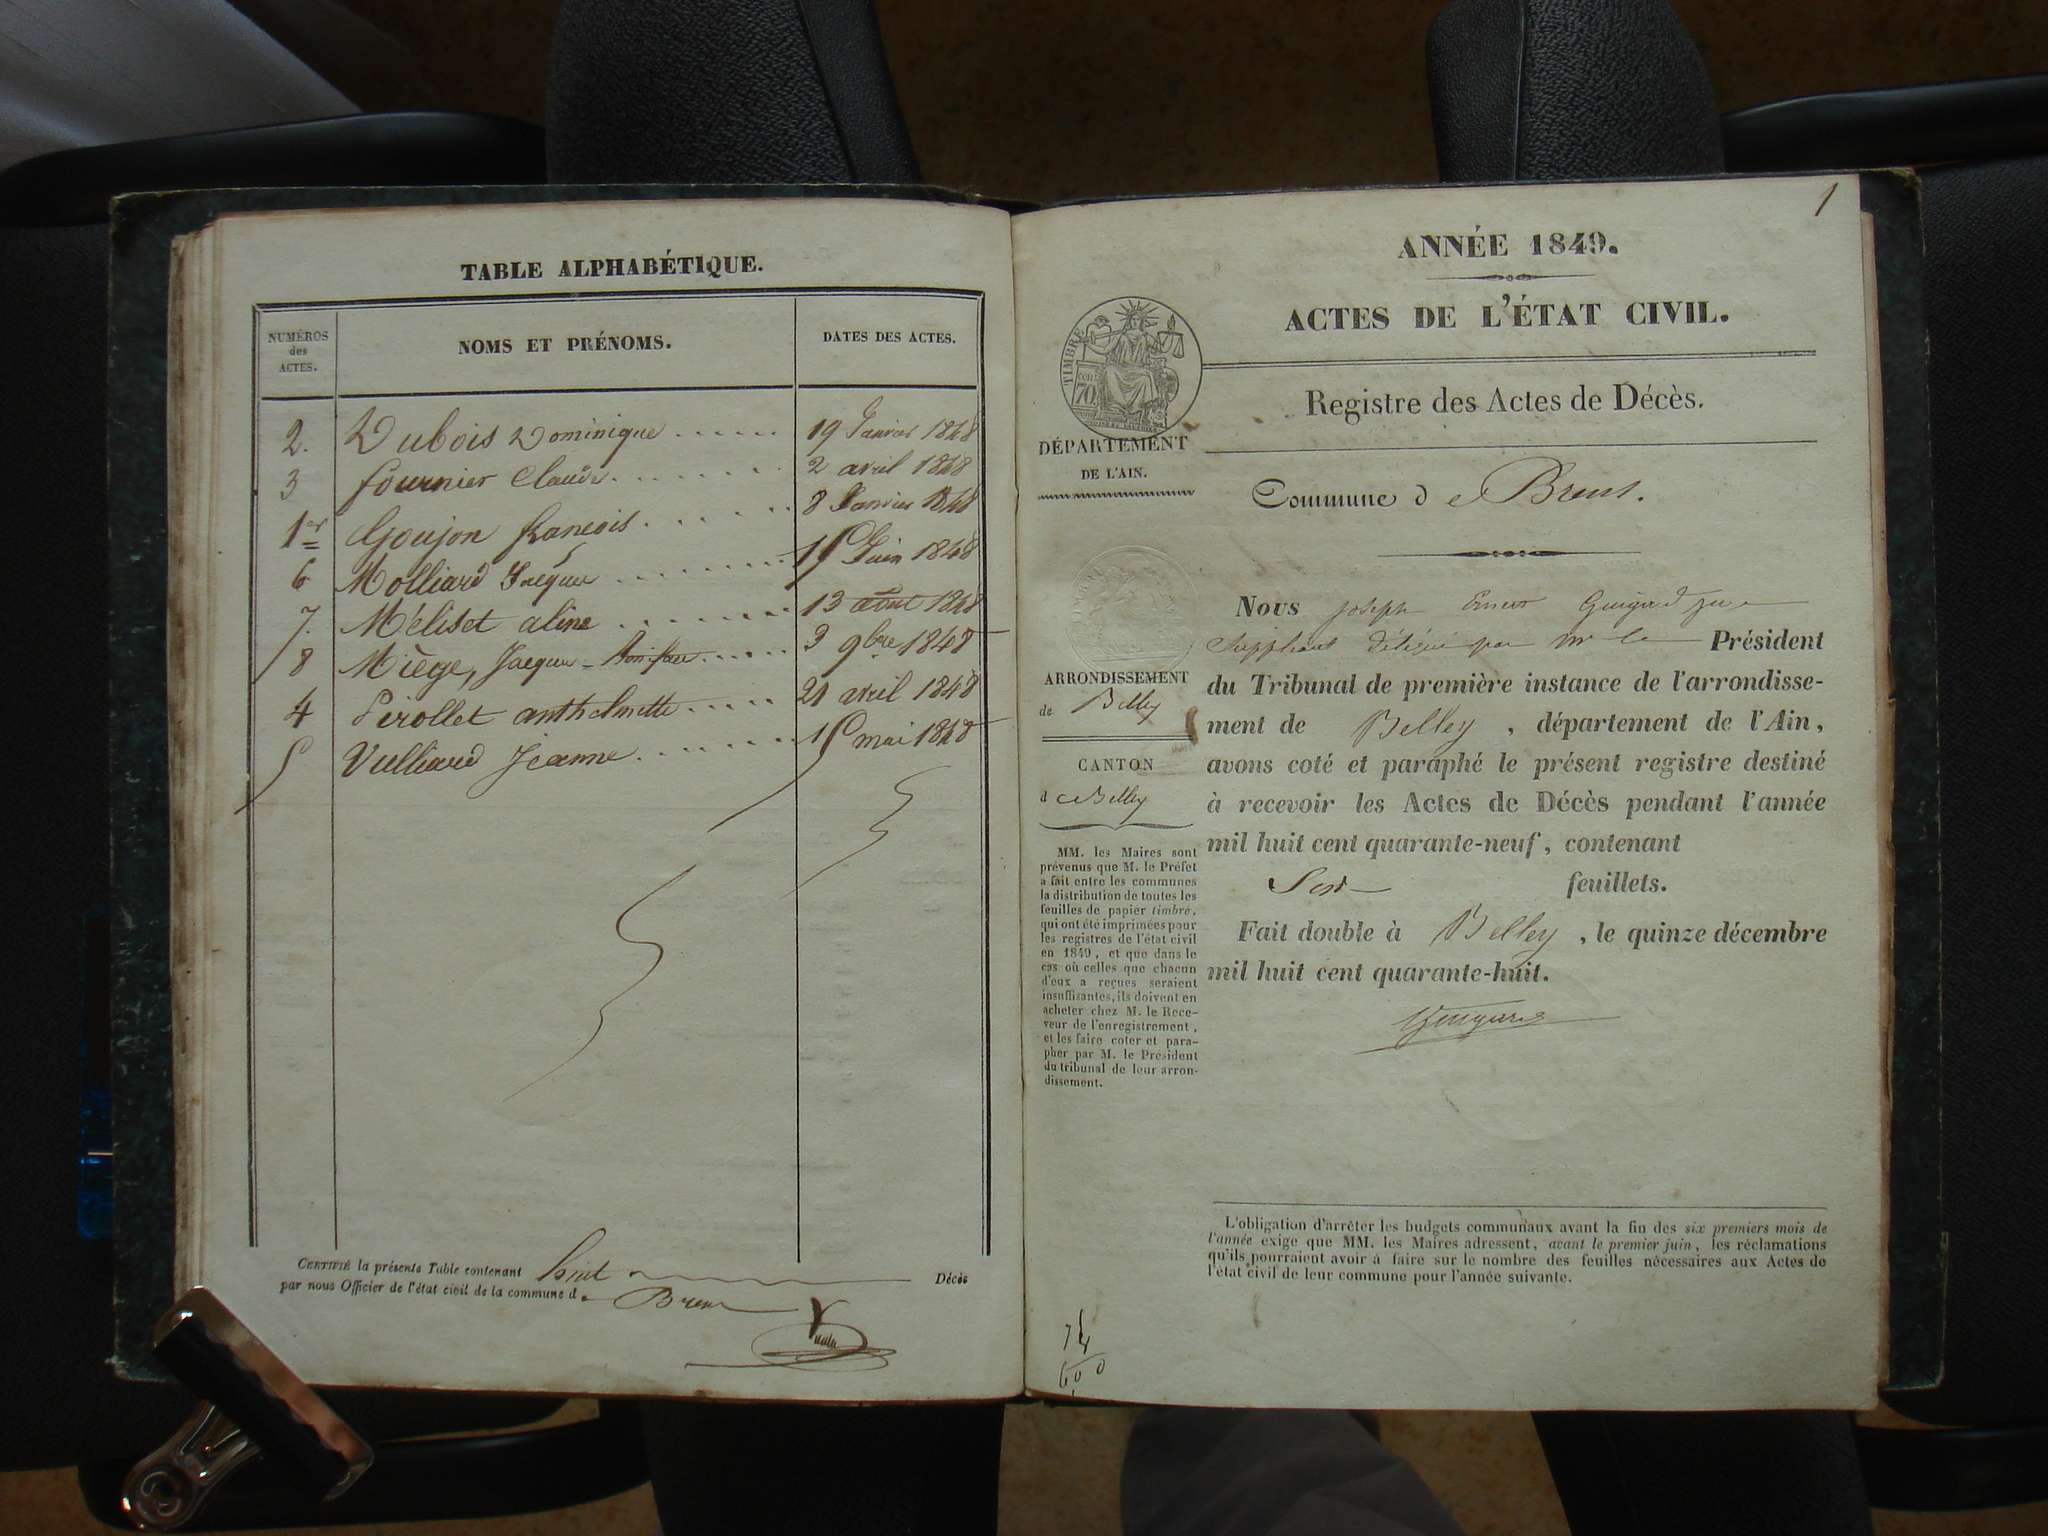 TABLE ALPHABÉTIQUE.
NUMÉROS
des
ACTES.
NOMS ET PRÉNOMS.
DATES DES ACTES.
2. Dubois Dominique 19 Janvier 1848
3 fournier Claude 2 avril 1848
1er Goujon francois 8 Janvier 1848
6 Molliard Jacques 15 Juin 1848
7. Méliset aline 13 août 1848
8 Miège, Jacques 3 9bre 1848
4 Perollet anthelmette 21 avril 1848
5 Vulliard Jeanne 15 mai 1848
CERTIFIÉ la présente Table contenant huit Décès
par nous Officier de l'état civil de la commune de Brens
1
ANNÉE 1849.
ACTES DE L'ÉTAT CIVIL.
TIMBRE
70
Registre des Actes de Décès.
DÉPARTEMENT
DE L'AIN.
Commune de Brens.
ARRONDISSEMENT
de Belley
CANTON
de Belley
MM. les Maires sont
prévenus que M. le Préfet
a fait entre les communes
la distribution de toutes les
feuilles de papier timbré,
qui ont été imprimées pour
les registres de l'état civil
en 1849, et que dans le
cas où celles que chacun
d'eux a reçues seraient
insuffisantes, ils doivent en
acheter chez M. le Rece-
veur de l'enregistrement,
et les faire coter et para-
pher par M. le Président
du tribunal de leur arron-
dissement.
Nous Joseph Guigard juge
Suppléant délégué par Mr le Président
du Tribunal de première instance de l'arrondisse-
ment de Belley, département de l'Ain,
avons coté et paraphé le présent registre destiné
à recevoir les Actes de Décès pendant l'année
mil huit cent quarante-neuf, contenant
feuillets.
Fait double à Belley, le quinze décembre
mil huit cent quarante-huit.
L'obligation d'arrêter les budgets communaux avant la fin des six premiers mois de
l'année exige que MM. les Maires adressent, avant le premier juin, les réclamations
qu'ils pourraient avoir à faire sur le nombre des feuilles nécessaires aux Actes de
l'état civil de leur commune pour l'année suivante.